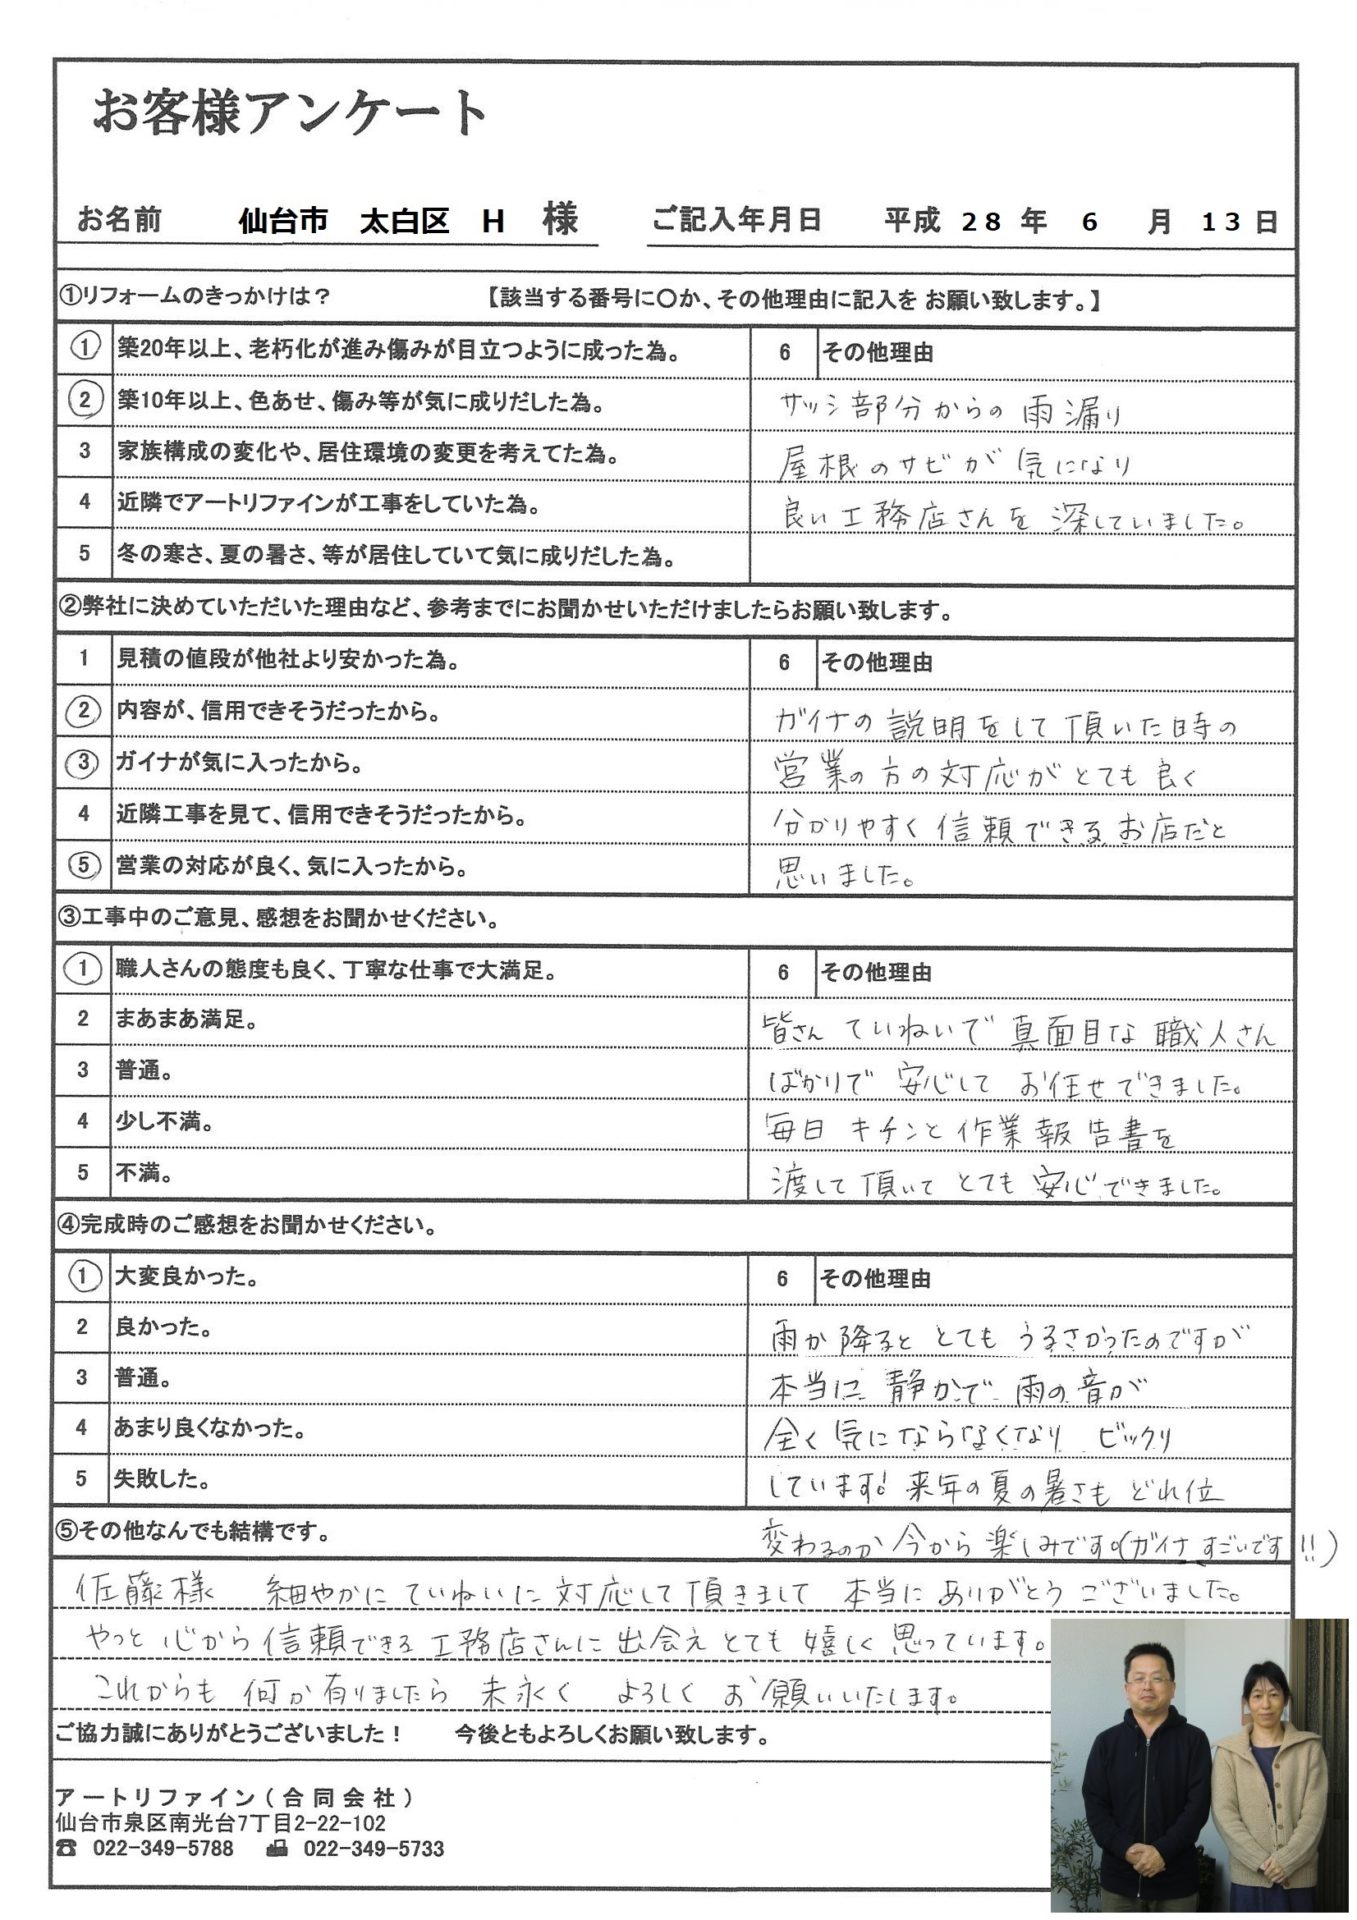 お客様アンケート
お名前 仙台市 太白区 H 様 ご記入年月日 平成 28 年 6 月 13 日
①リフォームのきっかけは？ 【該当する番号に〇か、その他理由に記入を お願い致します。】
1 築20年以上、老朽化が進み傷みが目立つように成った為。 6 その他理由
2 築10年以上、色あせ、傷み等が気に成りだした為。 サッシ部分からの雨漏り
3 家族構成の変化や、居住環境の変更を考えてた為。 屋根のサビが気になり
4 近隣でアートリファインが工事をしていた為。 良い工務店さんを深していました。
5 冬の寒さ、夏の暑さ、等が居住していて気に成りだした為。
②弊社に決めていただいた理由など、参考までにお聞かせいただけましたらお願い致します。
1 見積の値段が他社より安かった為。 6 その他理由
2 内容が、信用できそうだったから。 ガイナの説明をして頂いた時の
3 ガイナが気に入ったから。 営業の方の対応がとても良く
4 近隣工事を見て、信用できそうだったから。 分かりやすく信頼できるお店だと
5 営業の対応が良く、気に入ったから。 思いました。
③工事中のご意見、感想をお聞かせください。
1 職人さんの態度も良く、丁寧な仕事で大満足。 6 その他理由
2 まあまあ満足。 皆さん ていねいで 真面目な 職人さん
3 普通。 ばかりで 安心して お任せできました。
4 少し不満。 毎日 キチンと 作業報告書を
5 不満。 渡して頂いて とても 安心できました。
④完成時のご感想をお聞かせください。
1 大変良かった。 6 その他理由
2 良かった。 雨が降ると とても うるさかったのですが
3 普通。 本当に 静かで 雨の音が
4 あまり良くなかった。 全く気にならなくなり ビックリ
5 失敗した。 しています! 来年の夏の暑さも どれ位
⑤その他なんでも結構です。 変わるのか今から楽しみです。(ガイナ すごいです!!)
佐藤様 細やかに ていねいに 対応して頂きまして 本当に ありがとう ございました。
やっと 心から信頼できる工務店さんに 出会え とても嬉しく思っています。
これからも 何か有りましたら 末永く よろしく お願いいたします。
ご協力誠にありがとうございました！ 今後ともよろしくお願い致します。
アートリファイン（合同会社）
仙台市泉区南光台7丁目2-22-102
☎ 022-349-5788 📠 022-349-5733